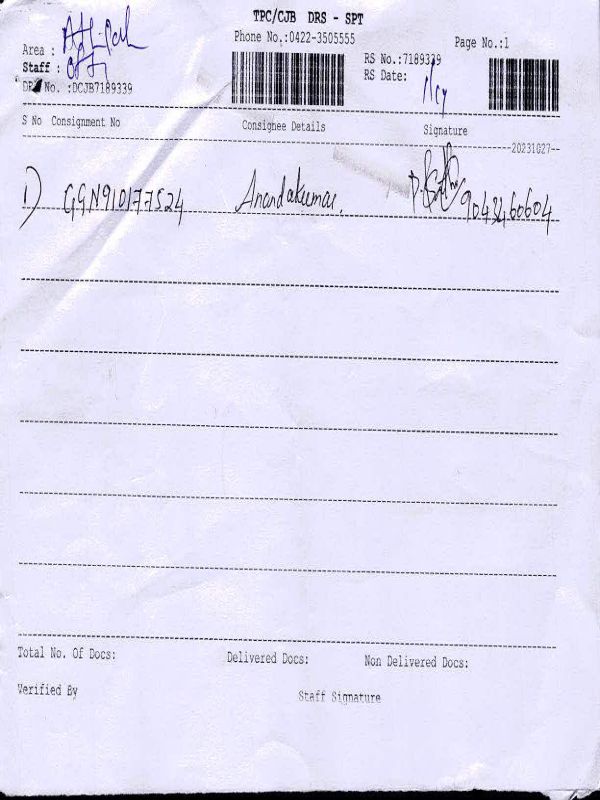 TPC/CJB DRS - SPT
Phone No.:0422-3505555
Page No.:1
Area :
RS No.:7189339
Staff :
RS Date:
No. :DCJB7189339
S No Consignment No Consignee Details Signature
20231027
1) GGN910177524 Anandakumar. 9043460604
Total No. Of Docs: Delivered Docs: Non Delivered Docs:
Verified By Staff Signature